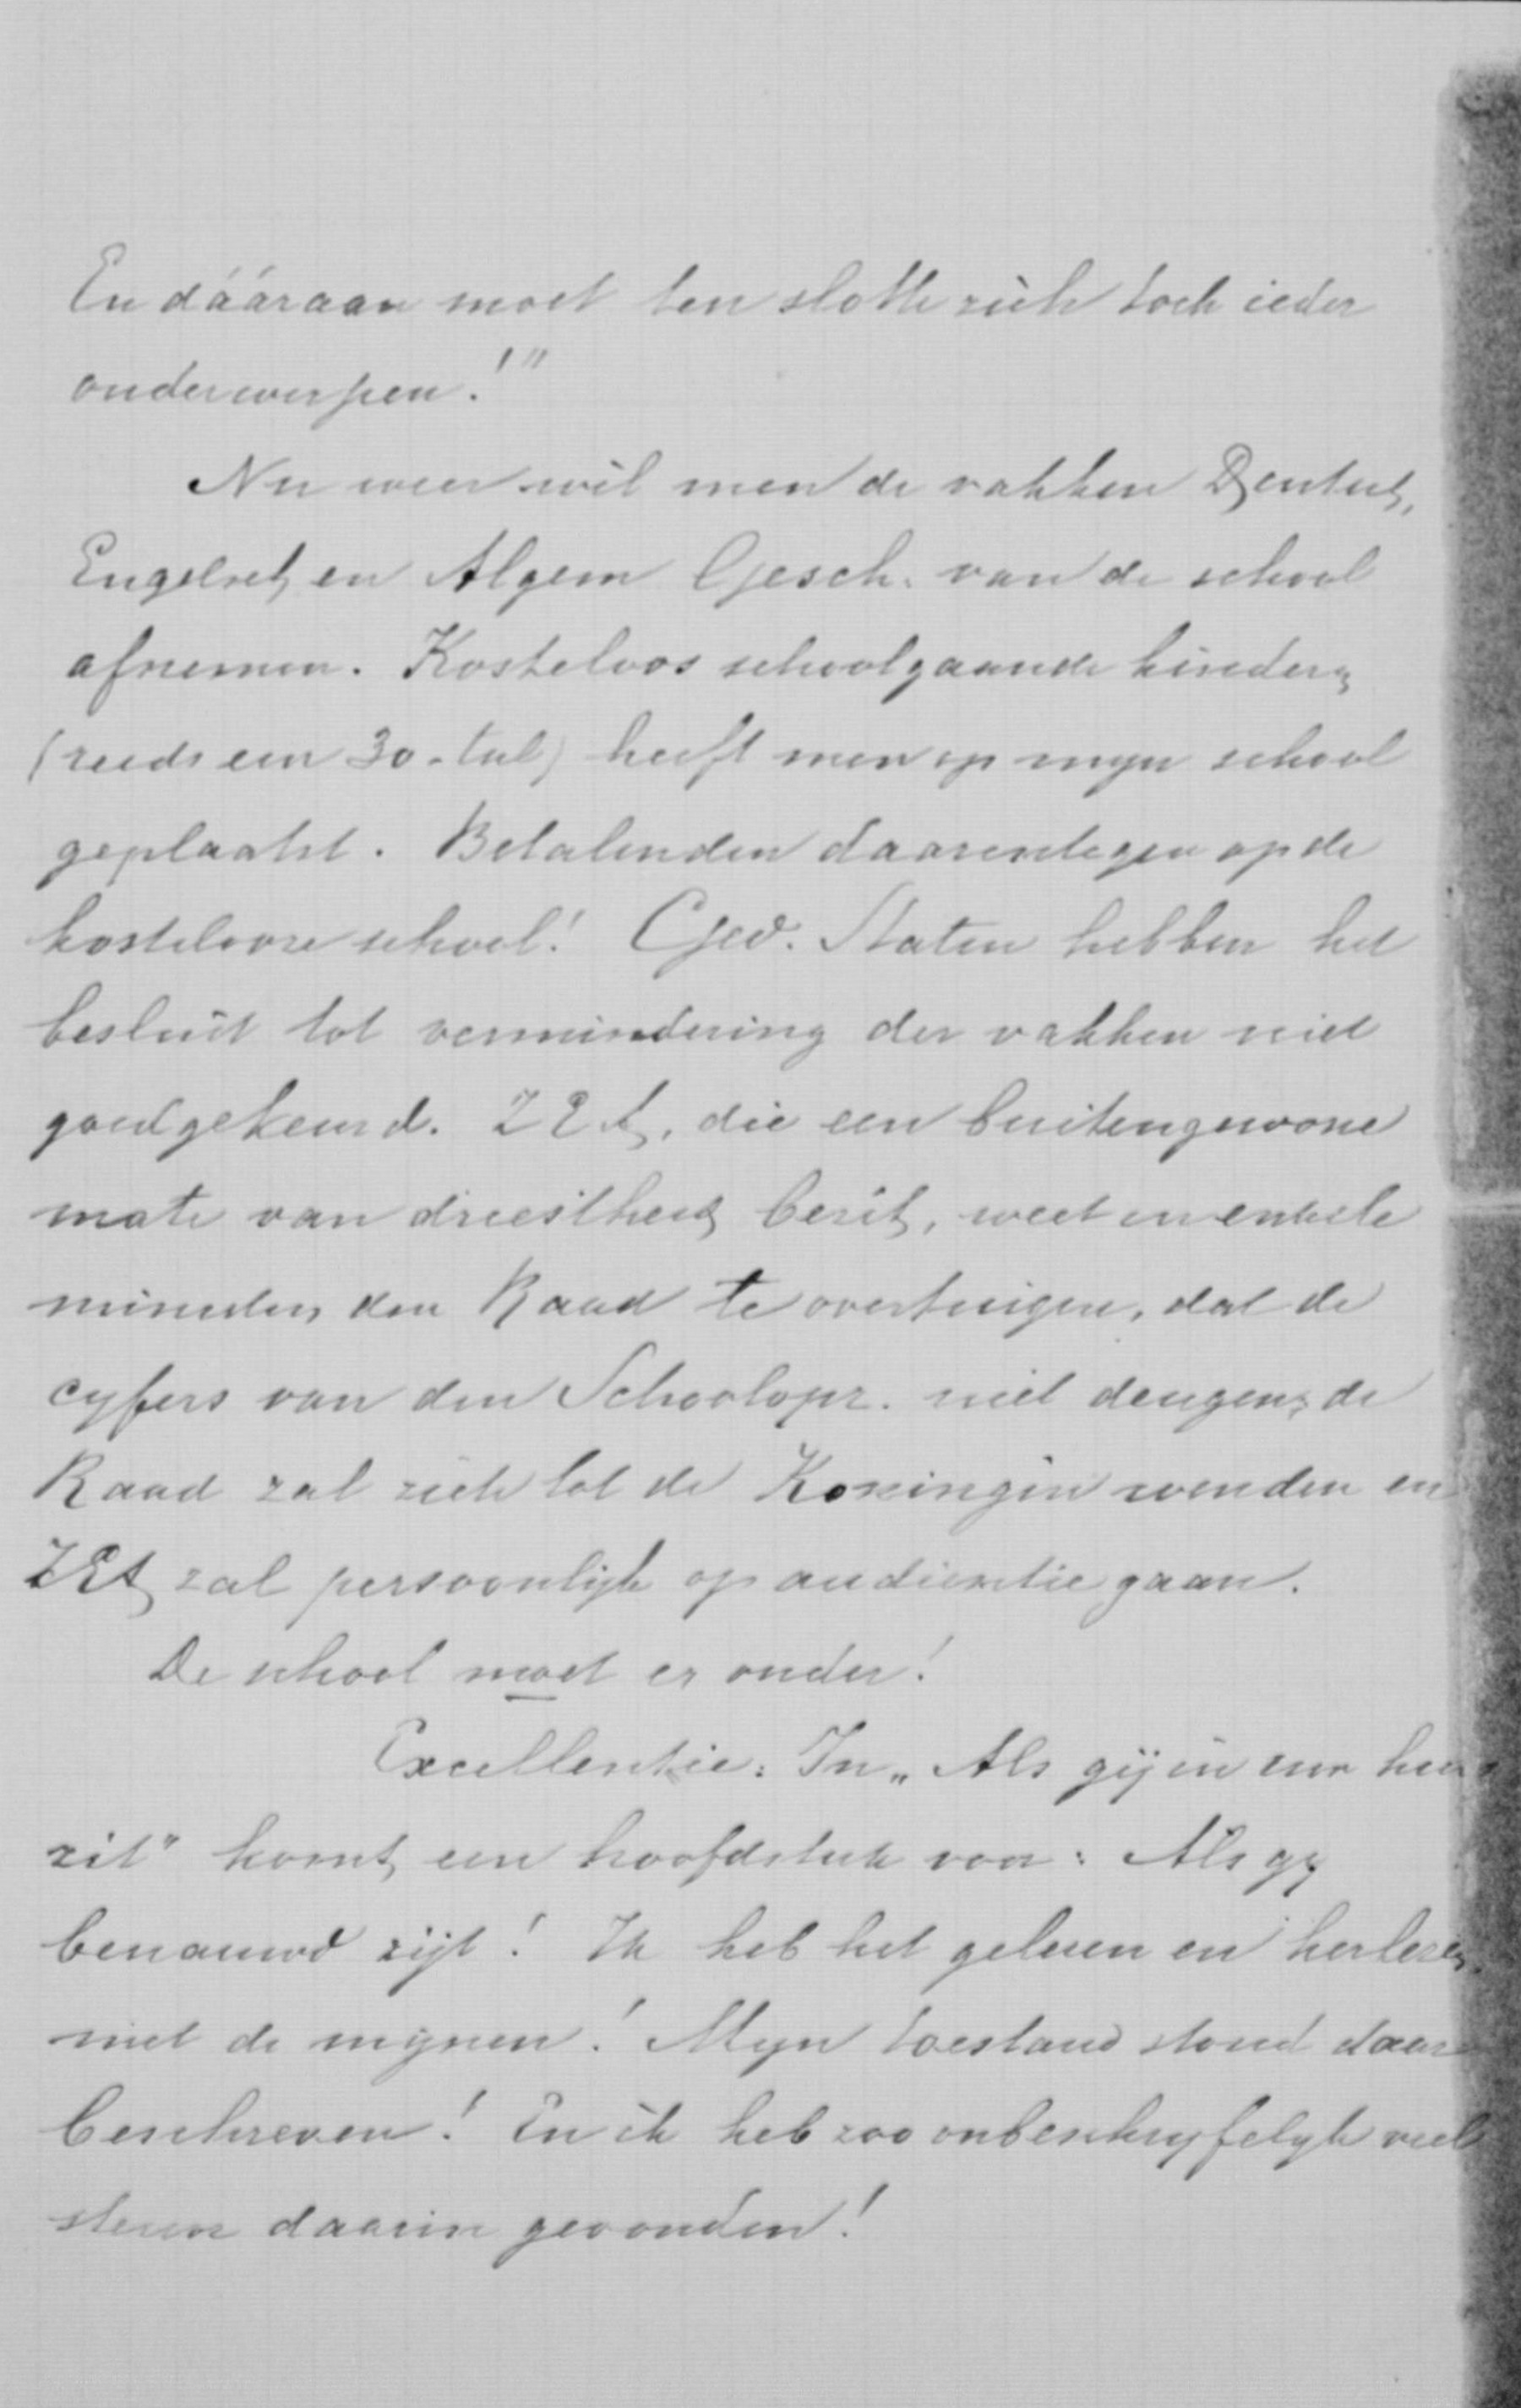 En dááraan moet ten slotte zich toch ieder
onderwerpen!"
Nu weer wil men de vakken Deutsch,
Engelsch en Algem Gesch. van de school
afnemen. Kosteloos schoolgaande kinderen
(reeds een 30-tal) heeft men op mijn school
geplaatst. Betalenden daarentegen op de
kostelooze school! Ged. Staten hebben het
besluit tot vermindering der vakken niet
goedgekeurd. ZEA, die een buitengewone
mate van driestheid bezit, weet in enkele
minuten den Raad te overtuigen, dat de
cyfers van den Schoolopz. niet deugen; de
Raad zal zich tot de Koningin wenden en
ZEA zal persoonlijk op audientie gaan.
De school moet er onder!
Excellentie: In „Als gij in uw huis
zit" komt een hoofdstuk voor: Als gy
benauwd zijt! Ik heb het gelezen en herlezen
met de mijnen! Mijn toestand stond daar
beschreven! En ik heb zoo onbeschryfelyk veel
steun daarin gevonden!